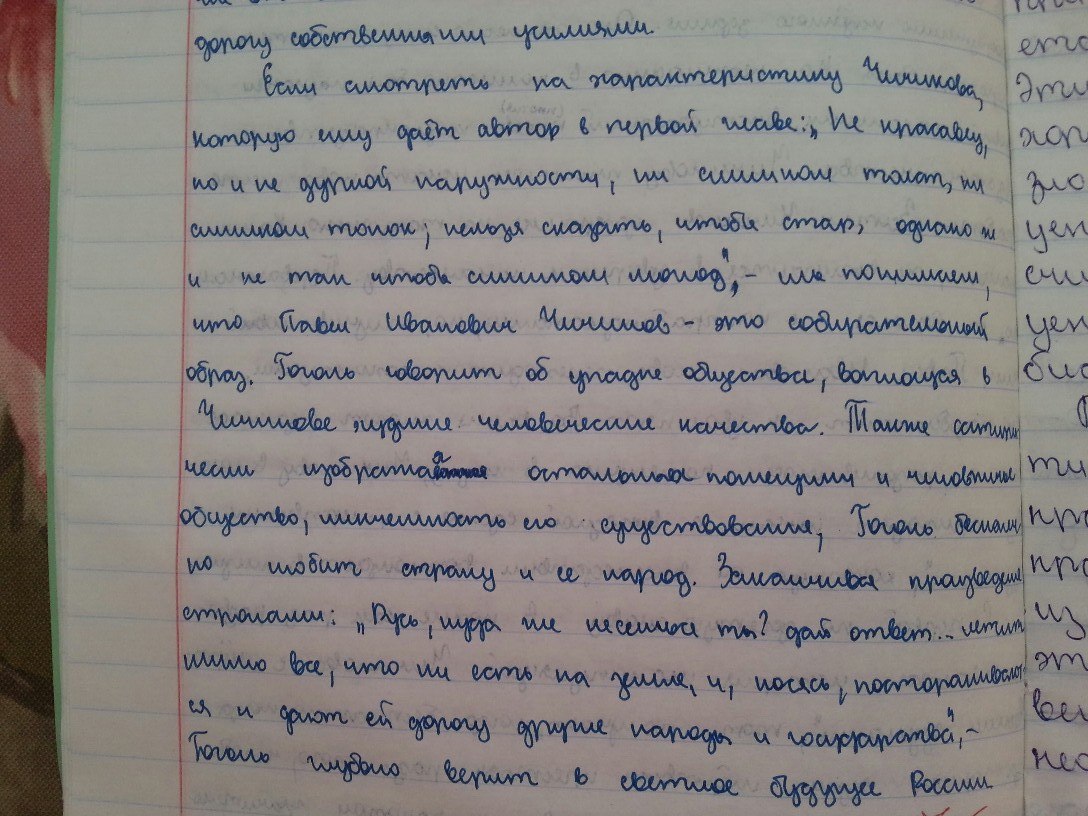 дорогу собственными усилиями.
Если смотреть на характеристику Чичикова,
которую ему даёт автор в первой главе: „Не красавец,
но и не дурной наружности, ни слишком толст, ни
слишком тонок; нельзя сказать, чтобы стар, однако ж
и не так чтобы слишком молод", – мы понимаем,
что Павел Иванович Чичиков – это собирательный
образ. Гоголь говорит об упадке общества, воплощая в
Чичикове худшие человеческие качества. Также сатири
чески изобразил остальных помещики и чиновничье
общество, никчемность его существования, Гоголь бесконеч
но любит страну и ее народ. Заканчивая произведение
строками: „Русь, куда ж несешься ты? дай ответ... летит
мимо все, что ни есть на земле, и, косясь, посторанивают
ся и дают ей дорогу другие народы и государства", –
Гоголь глубоко верит в светлое будущее России
ето
Эти
хор
зло
цен
счи
цен
био
ти
про
про
из
эт
вен
нео